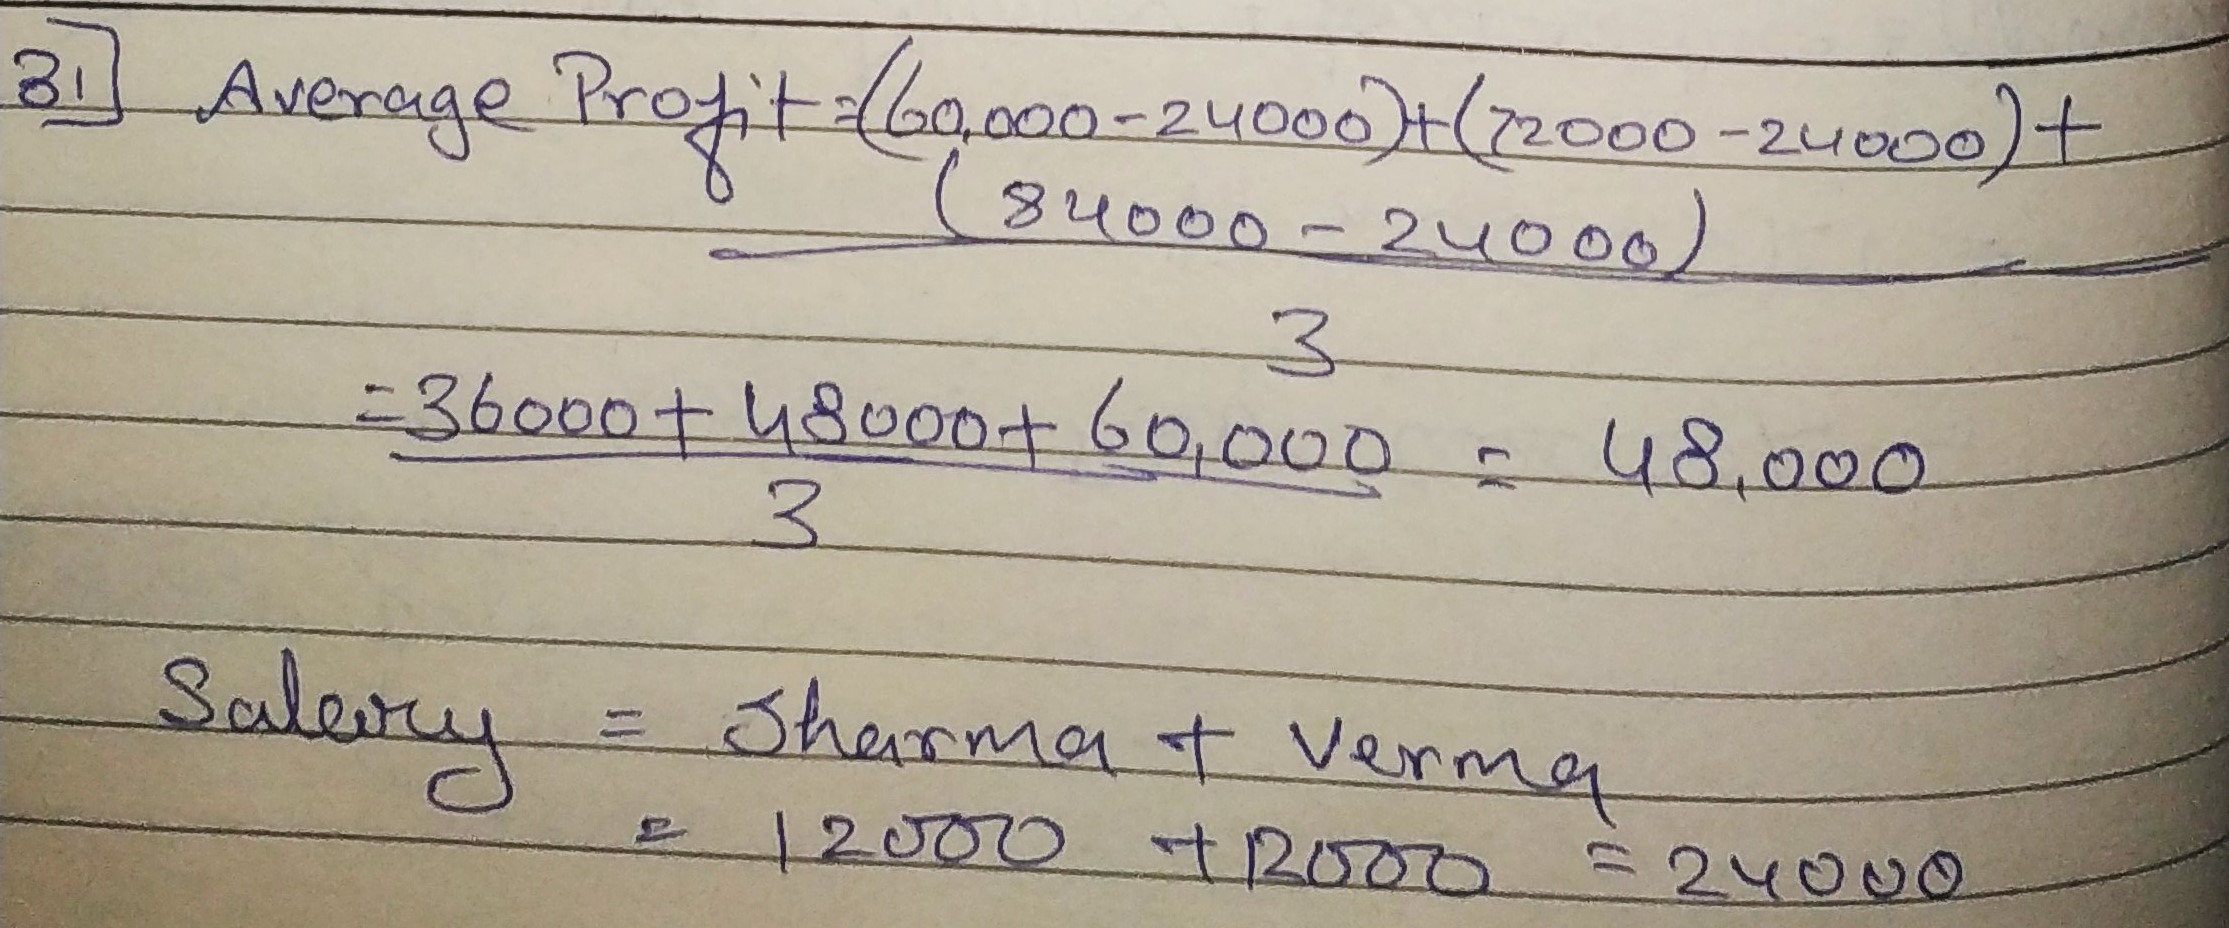 31] Average Profit = (60,000 - 24000) + (72000 - 24000) +
(84000 - 24000)
3
= 36000 + 48000 + 60,000 = 48,000
3
Salary = Sharma + Verma
= 12000 + 12000 = 24000